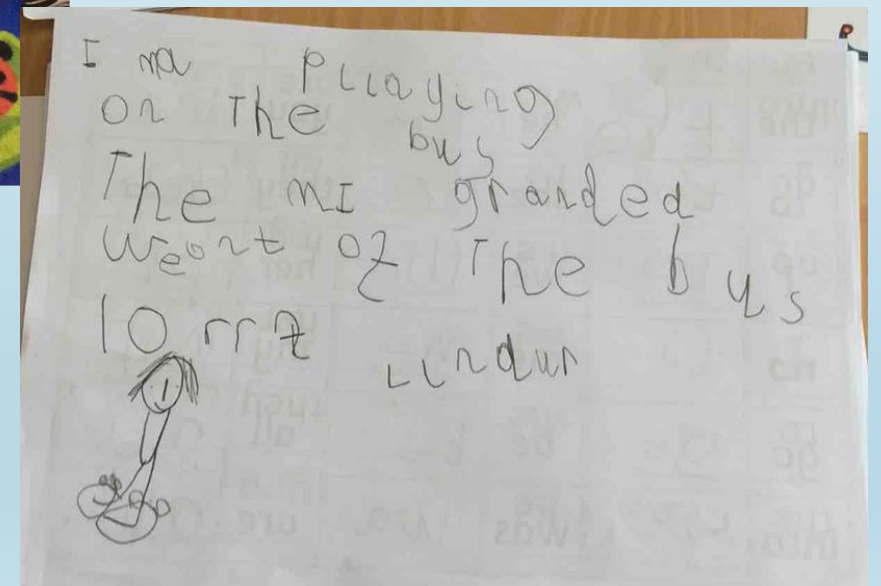 I ma Pllaying
on The bus
The mI granded
weont of The bus
10 rrt Lindun